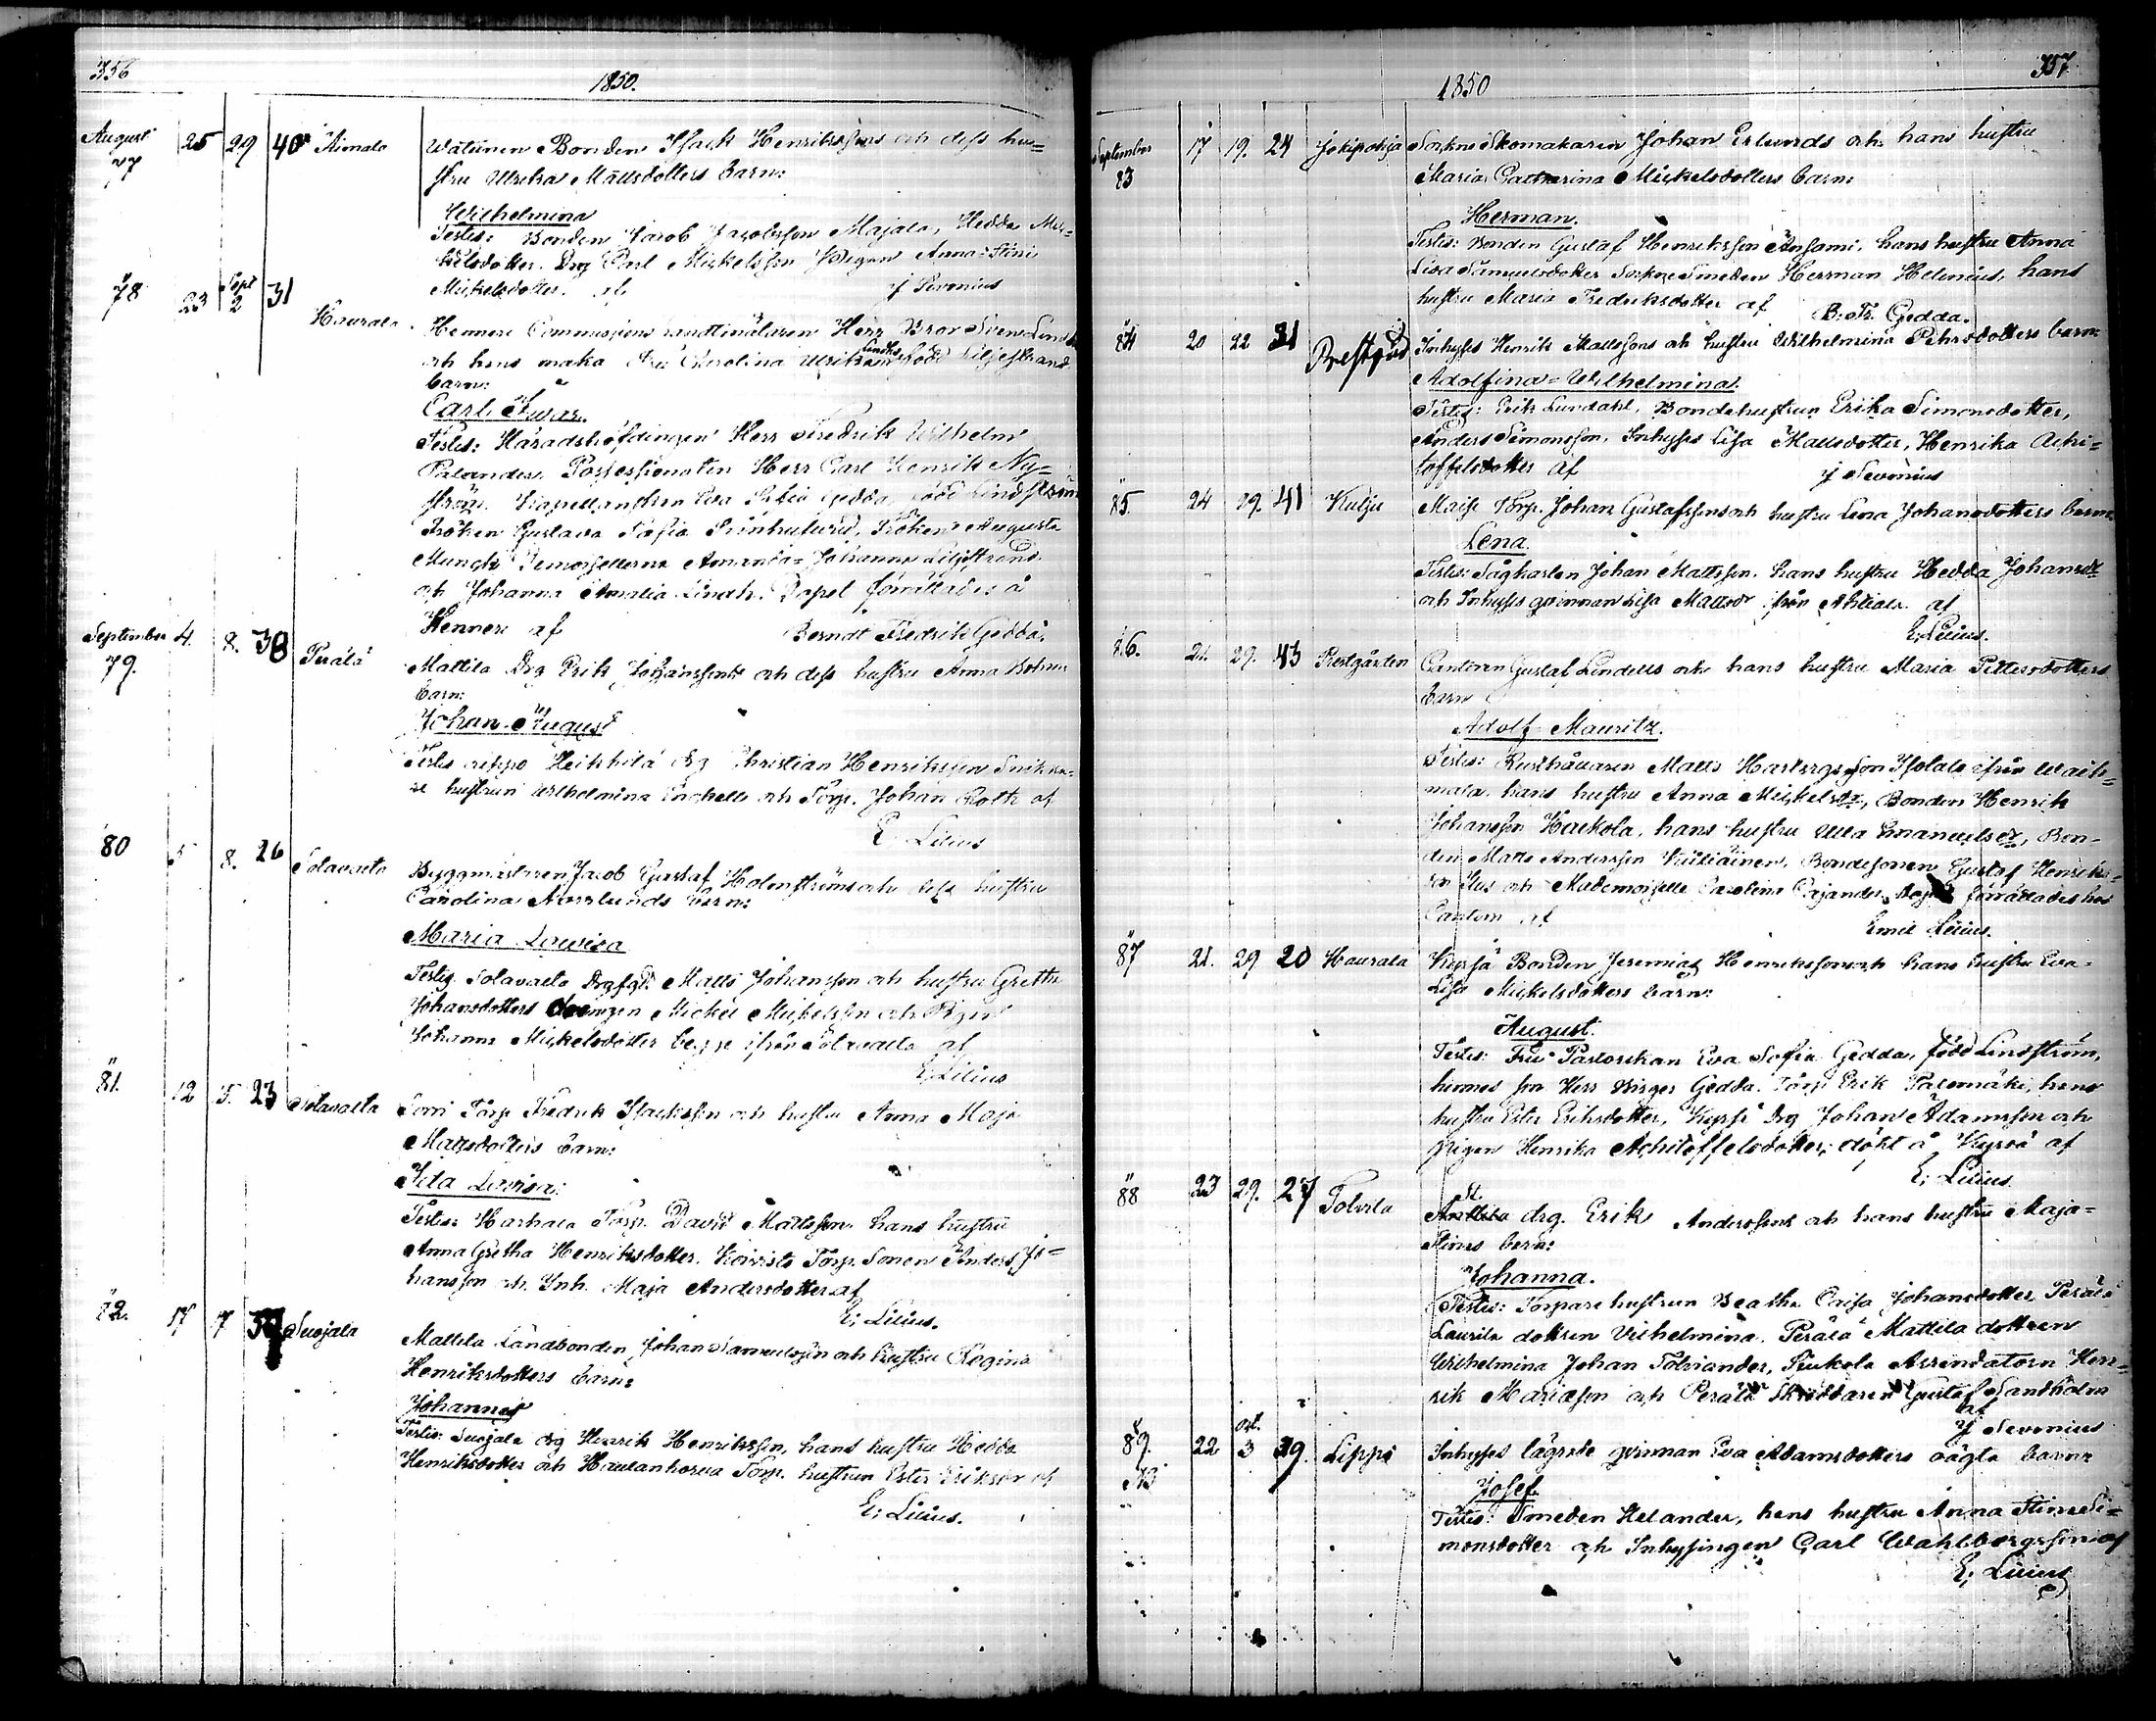 356
1850.
August 77 25 29 40 Aimala Watunen Bonden Isack Henrikssons och dess hu=
stru Ulrika Mattsdotters barn:
Wilhelmina
Testes: Bonden Jacob Jacobsson Majala, Hedda Mic=
kelsdotter. Drg Carl Mickelsson Pigan Anna Stina
Mickelsdotter. af J Sevonius
78 23 Sept 2 31 Haurala Henneri Commissions Landtmätaren Herr Bror Svens Lindh
och hans maka Fru Carolina Ulrika Lindhs född Liljestrand
barn:
Carl Ivar.
Testes: Häradshöfdingen Herr Fredrik Wilhelm
Palander. Possessionaten Herr Carl Henrik Ny=
ström. Kapellanskan Eva Sofia Gedda, född Lindström
Fröken Gustava Sofia Fröken Augusta
Munck Demoisellerna Amanda=Johanna Liljestrand
och Johanna Amalia Lindh. Dopet förrättades å
Henneri af Berndt Fredrik Gedda.
September 79. 4. 8. 38 Perälä Mattila Drg Erik Johanssons och dess hustru Anna
barn:
Johan August
Testes Heikkilä drg Christian Henriksson
hustrun Wilhelmina och Torp. Johan Roth af
E. Lilius
80 5 8. 26 Tolavalta Byggmästaren Jacob Gustaf Holmströms och dess hustru
Carolina Norrlunds barn:
Maria Lovisa
Testes. Tolavalta Matts Johansson och hustru Gretha
Johansdotters drängen Mickel Mickelsson och Pigan
Johanna Mickelsdotter begge ifrån Tolavalta af
E. Lilius
81. 12 15. 23 Tolavalta Torp Fredrik Isacksson och hustru Anna Maja
Mattsdotters barn:
Ida Lovisa:
Testes: Harhala Torp. David Mattsson. hans hustru
Anna Gretha Henriksdotter. Koivisto Torp. Sonen Anders Jo=
hansson och Inh. Maja Andersdotter af
E; Lilius.
82. 17 17 37 Suojala Mattila Landbonden Johan Samuelsson och hustru Regina
Henriksdotters barn:
Johannes
Testes: Suojala drg Henrik Henriksson, hans hustru Hedda
Henriksdotter och Torp. hustrun Ester Eriksdr af
E; Lilius.
357
1850
September 83 17 19. 24 Jokipohja Sockne Skomakaren Johan Erlunds och hans hustru
Maria Catharina Mickelsdotters barn:
Herman.
Testes: Bonden Gustaf Henriksson Ansami. hans hustru Anna
Lisa Samuelsdotter Sockne Smeden Herman Helenius, hans
hustru Maria Fredriksdotter af B. Fr. Gedda.
84 20 22 31 Prestgård Inhyses Henrik Mattssons och hustru Wilhelmina Pehrsdotters barn:
Adolfina=Wilhelmina.
Testes: Erik Lundahl. Bondehustrun Erika Simonsdotter,
Anders Simonsson. Inhyses Lisa Mattsdotter, Henrika Achi=
toffelsdotter af J Sevonius
85. 24 29. 41 Kulju Maise Torp. Johan Gustafssons och hustru Lena Johansdotters barn
Lena.
Testes: Johan Mattsson. hans hustru Hedda Johansdr
och Inhyses qvinnan Lisa Mattsdr från Ahtiala af
E. Lilius.
86. 21. 29. 43 Prestgården Cantorn Gustaf Lindells och hans hustru Maria Pettersdotters
barn
Adolf Mauritz.
Testes: Rusthållaren Matts Isotalo ifrån Wach=
mala. hans hustru Anna Mickelsdr, Bonden Henrik
Johansson Haukola, hans hustru Ulla Emanuelsdr, Bon=
den Matts Andersson Bondesonen Gustaf Henriks=
son och Mademoiselle Carolina Cajander. Dopet förrättades hos
Cantorn af Emil Lilius.
87 21. 29 20 Haurala Kyrsä Bonden Jeremias Henrikssons och hans hustru Eva
Lisa Mickelsdotters barn:
August.
Testes: Fru Pastorskan Eva Sofia Gedda, född Lindström,
hennes son Herr Birger Gedda. Torp. Erik Palomäki, hans
hustru Ester Eriksdotter, Kyrsä Drg Johan Adamsson och
Pigan Henrika Achitoffelsdotter, döpt å Kyrsä af
E; Lilius.
88 23 29. 27 Tolvila Anttila drg. Erik Anderssons och hans hustru Maja=
Stinas barn:
Johanna.
Testes: Torpare hustrun Beatha Caisa Johansdotter Perälä
Laurila dottren Vilhelmina. Perälä Mattila dottren
Wilhelmina Johan Tolviander, Arrendatorn Hen=
rik Mariasson och Perälä Skräddaren Gustaf Sandholm
af
J Sevonius
89. NB 22 oct. 3 39. Lippo Inhyses lägrade qvinnan Eva Adamsdotters oägta barn
Josef.
Testes: Smeden Helander, hans hustru Anna Stina Si=
monsdotter och Inhysingen Carl Wahlborgsson af
E; Lilius